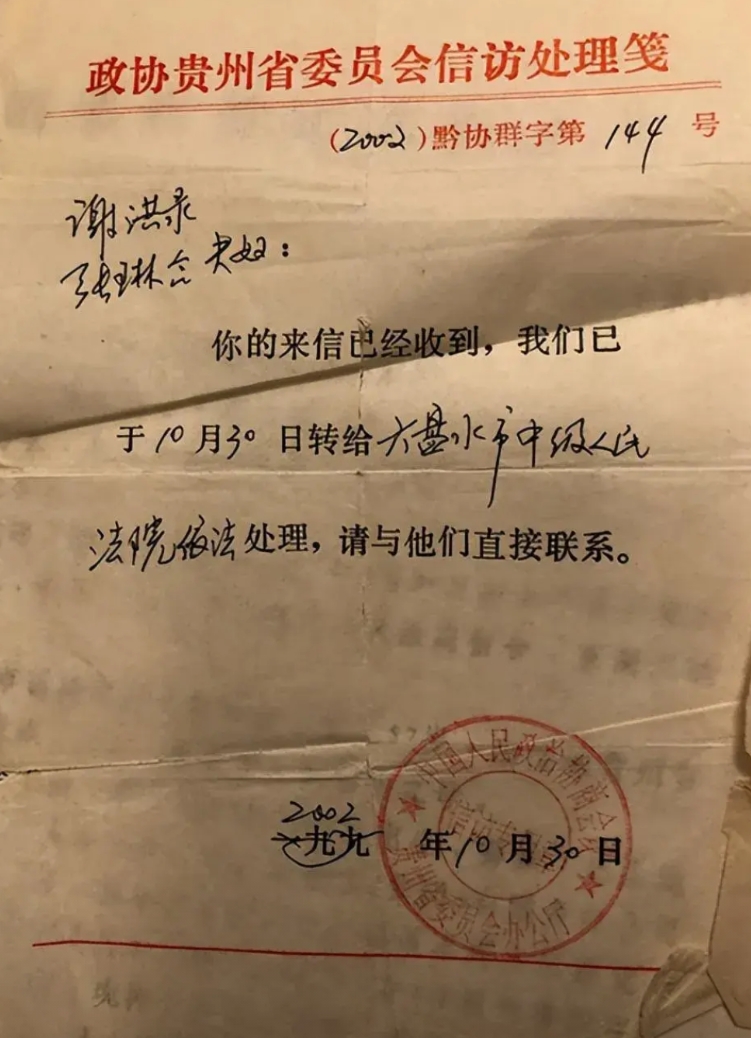 政协贵州省委员会信访处理笺
(2002)黔协群字第 144 号
谢洪录
张琳 夫妇：
你的来信已经收到，我们已
于10月30日转给六盘水市中级人民
法院依法处理，请与他们直接联系。
2002
一九九 年10月30日
中国人民政治协商会议
贵州省委员会办公厅
信访专用章